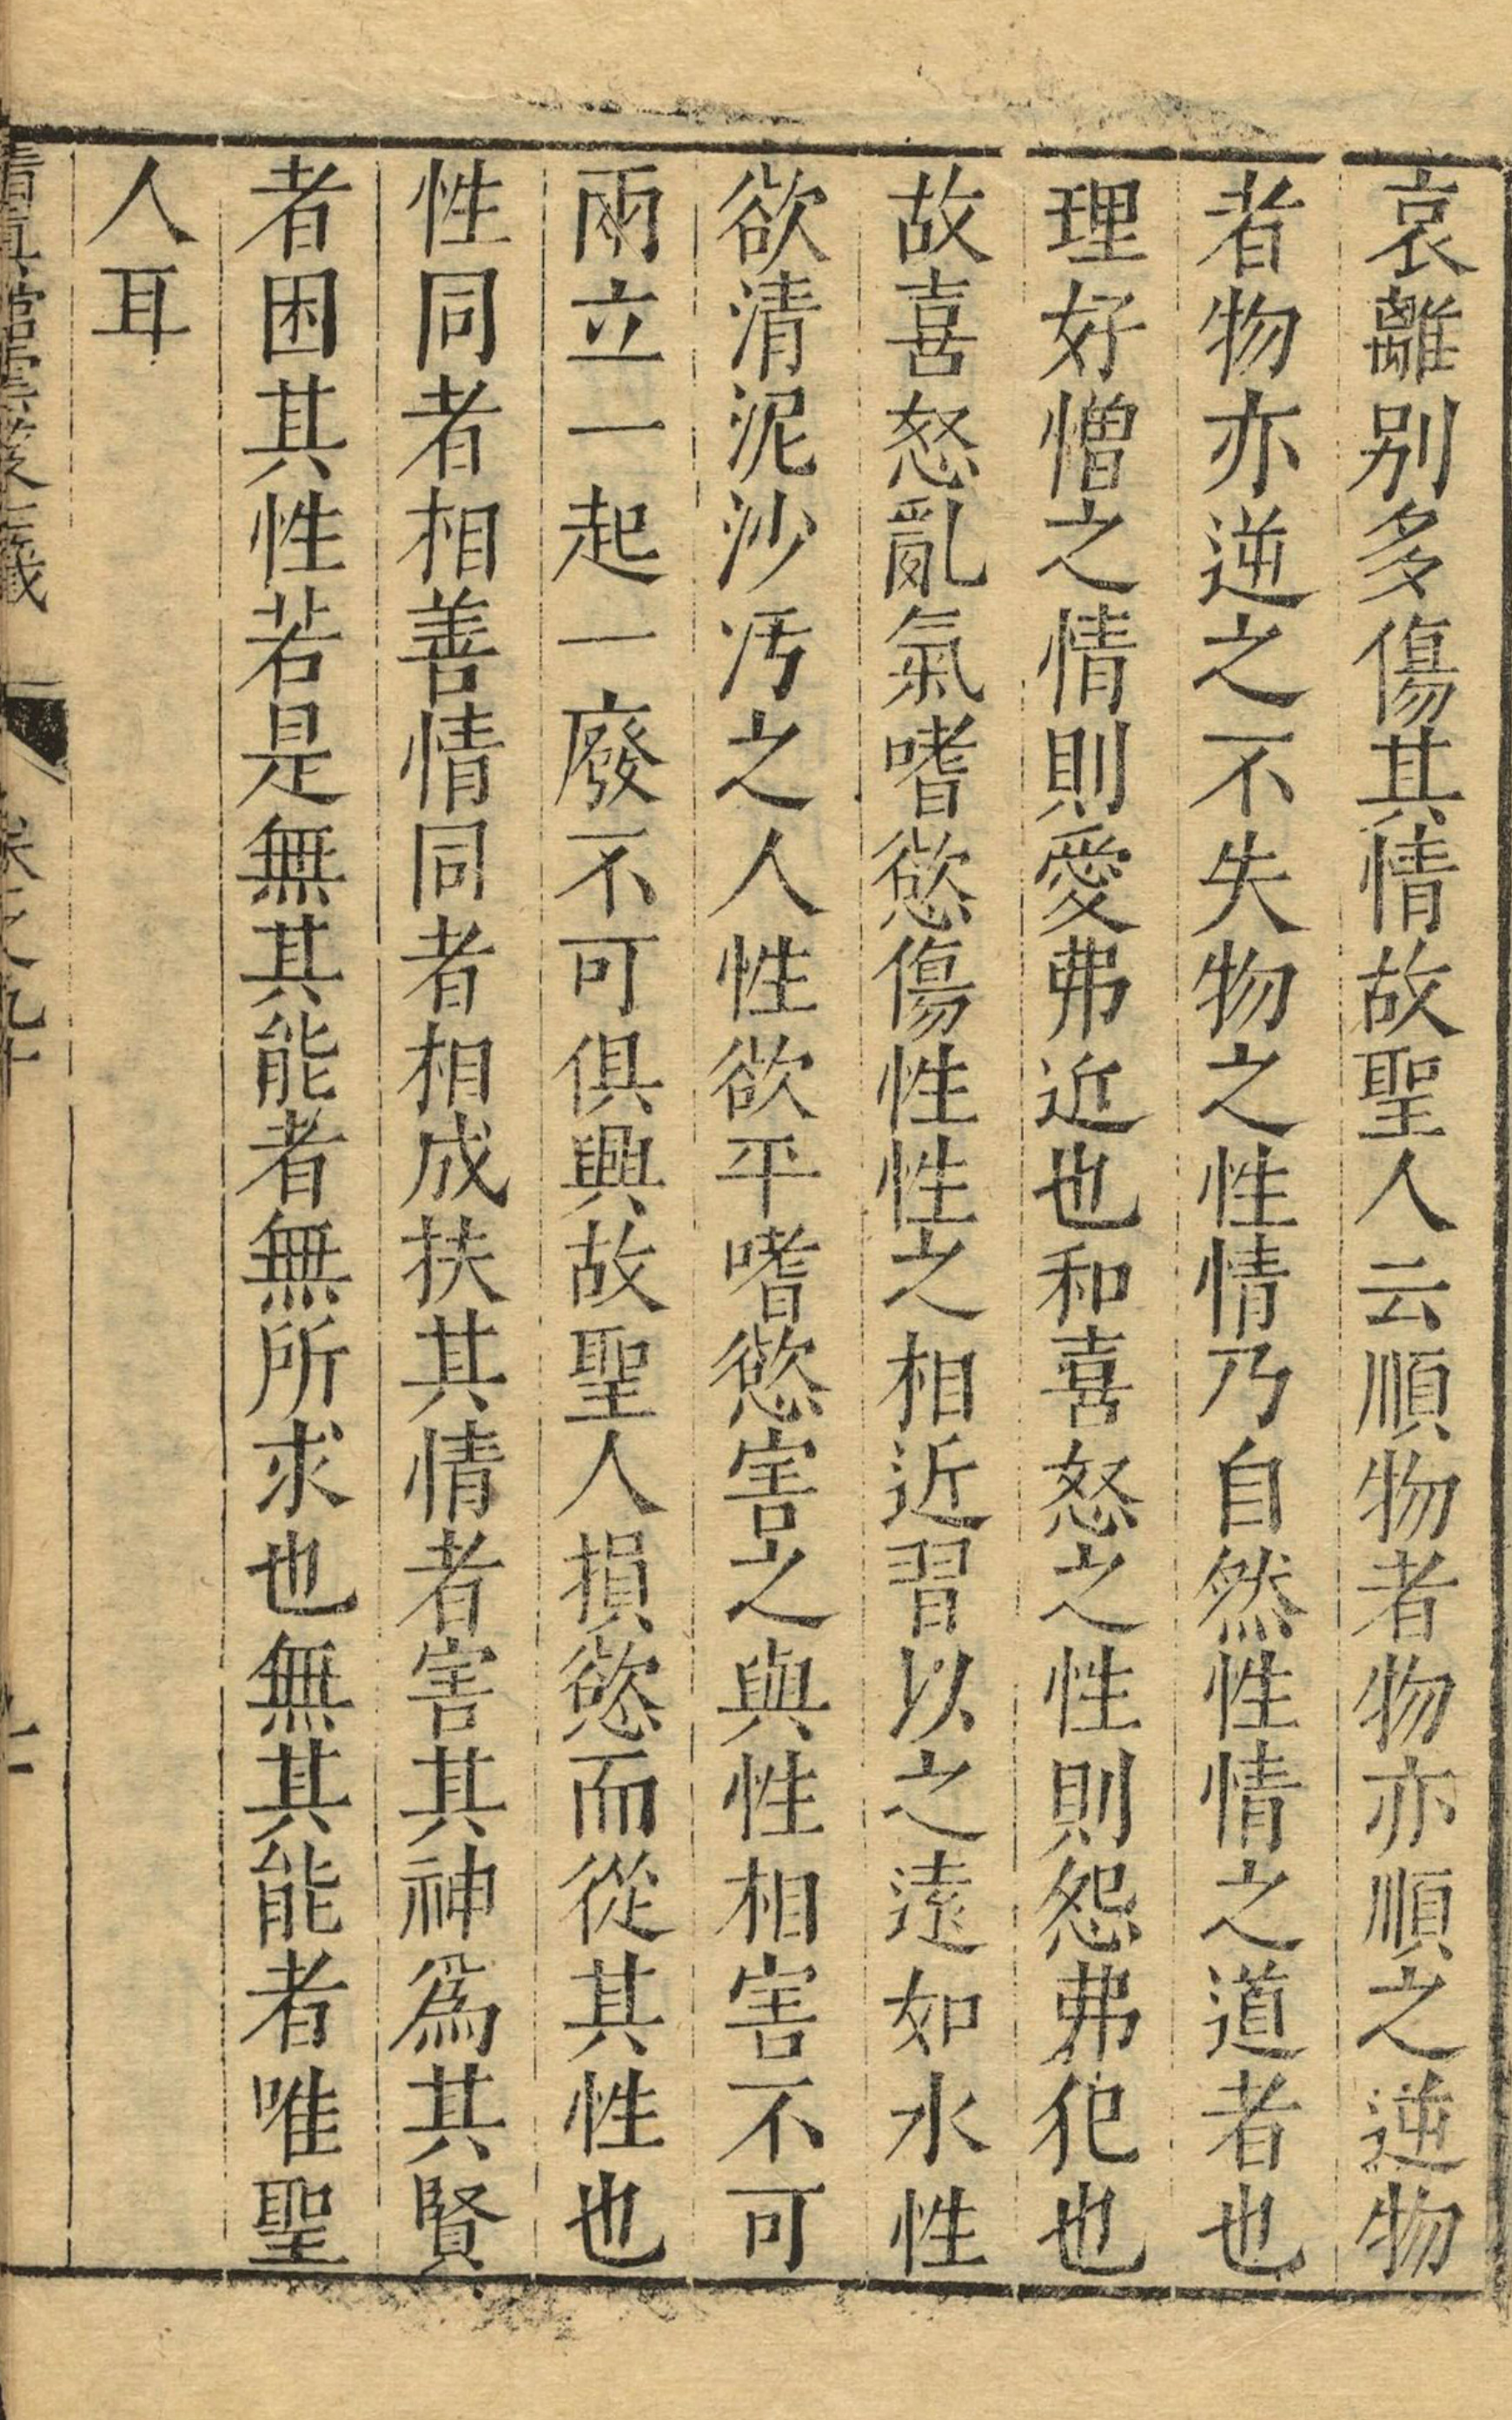 哀離别多傷其情故聖人云順物者物亦順之逆物
者物亦逆之不失物之性情乃自然性情之道者也
理好憎之情則愛弗近也和喜怒之性則怨弗犯也
故喜怒亂氣嗜慾傷性性之相近習以之遠如水性
欲清泥沙汚之人性欲平嗜慾害之與性相害不可
兩立一起一廢不可俱興故聖人損慾而從其性也
性同者相善情同者相成扶其情者害其神爲其賢
者困其性若是無其能者無所求也無其能者唯聖
人耳
卷之九十